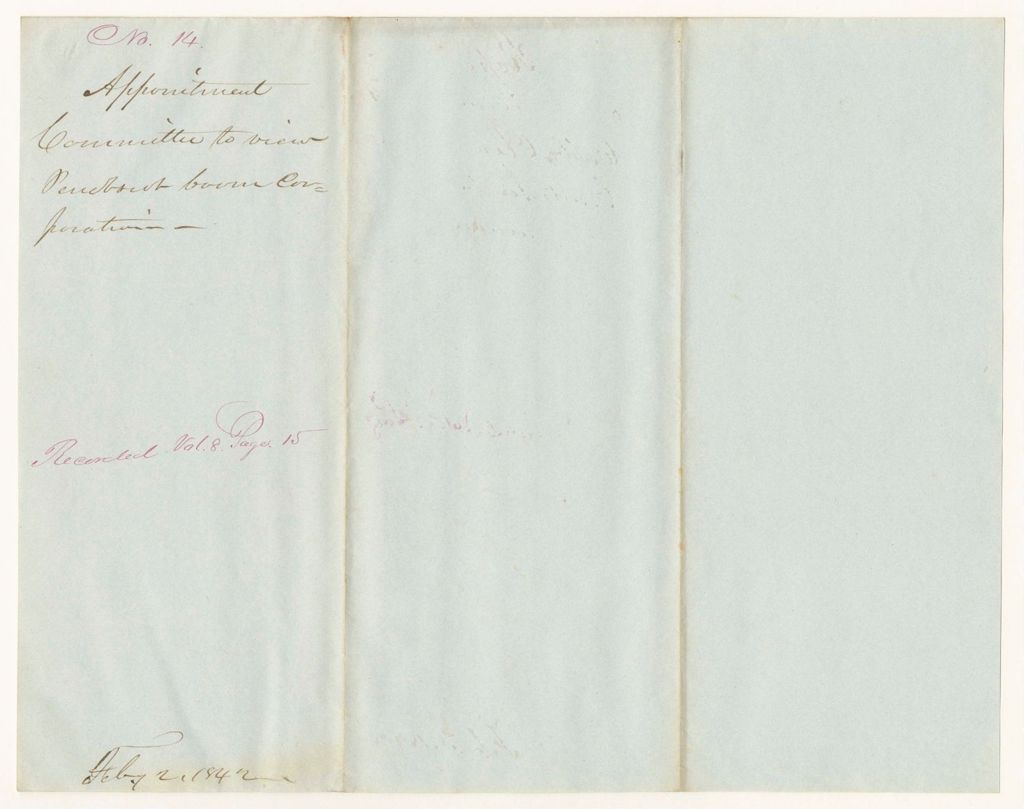 No. 14.
Appointment
Committee to view
Penobscot boom Cor=
poration —
Recorded Vol. 8. Page. 15
Feby 2, 1842